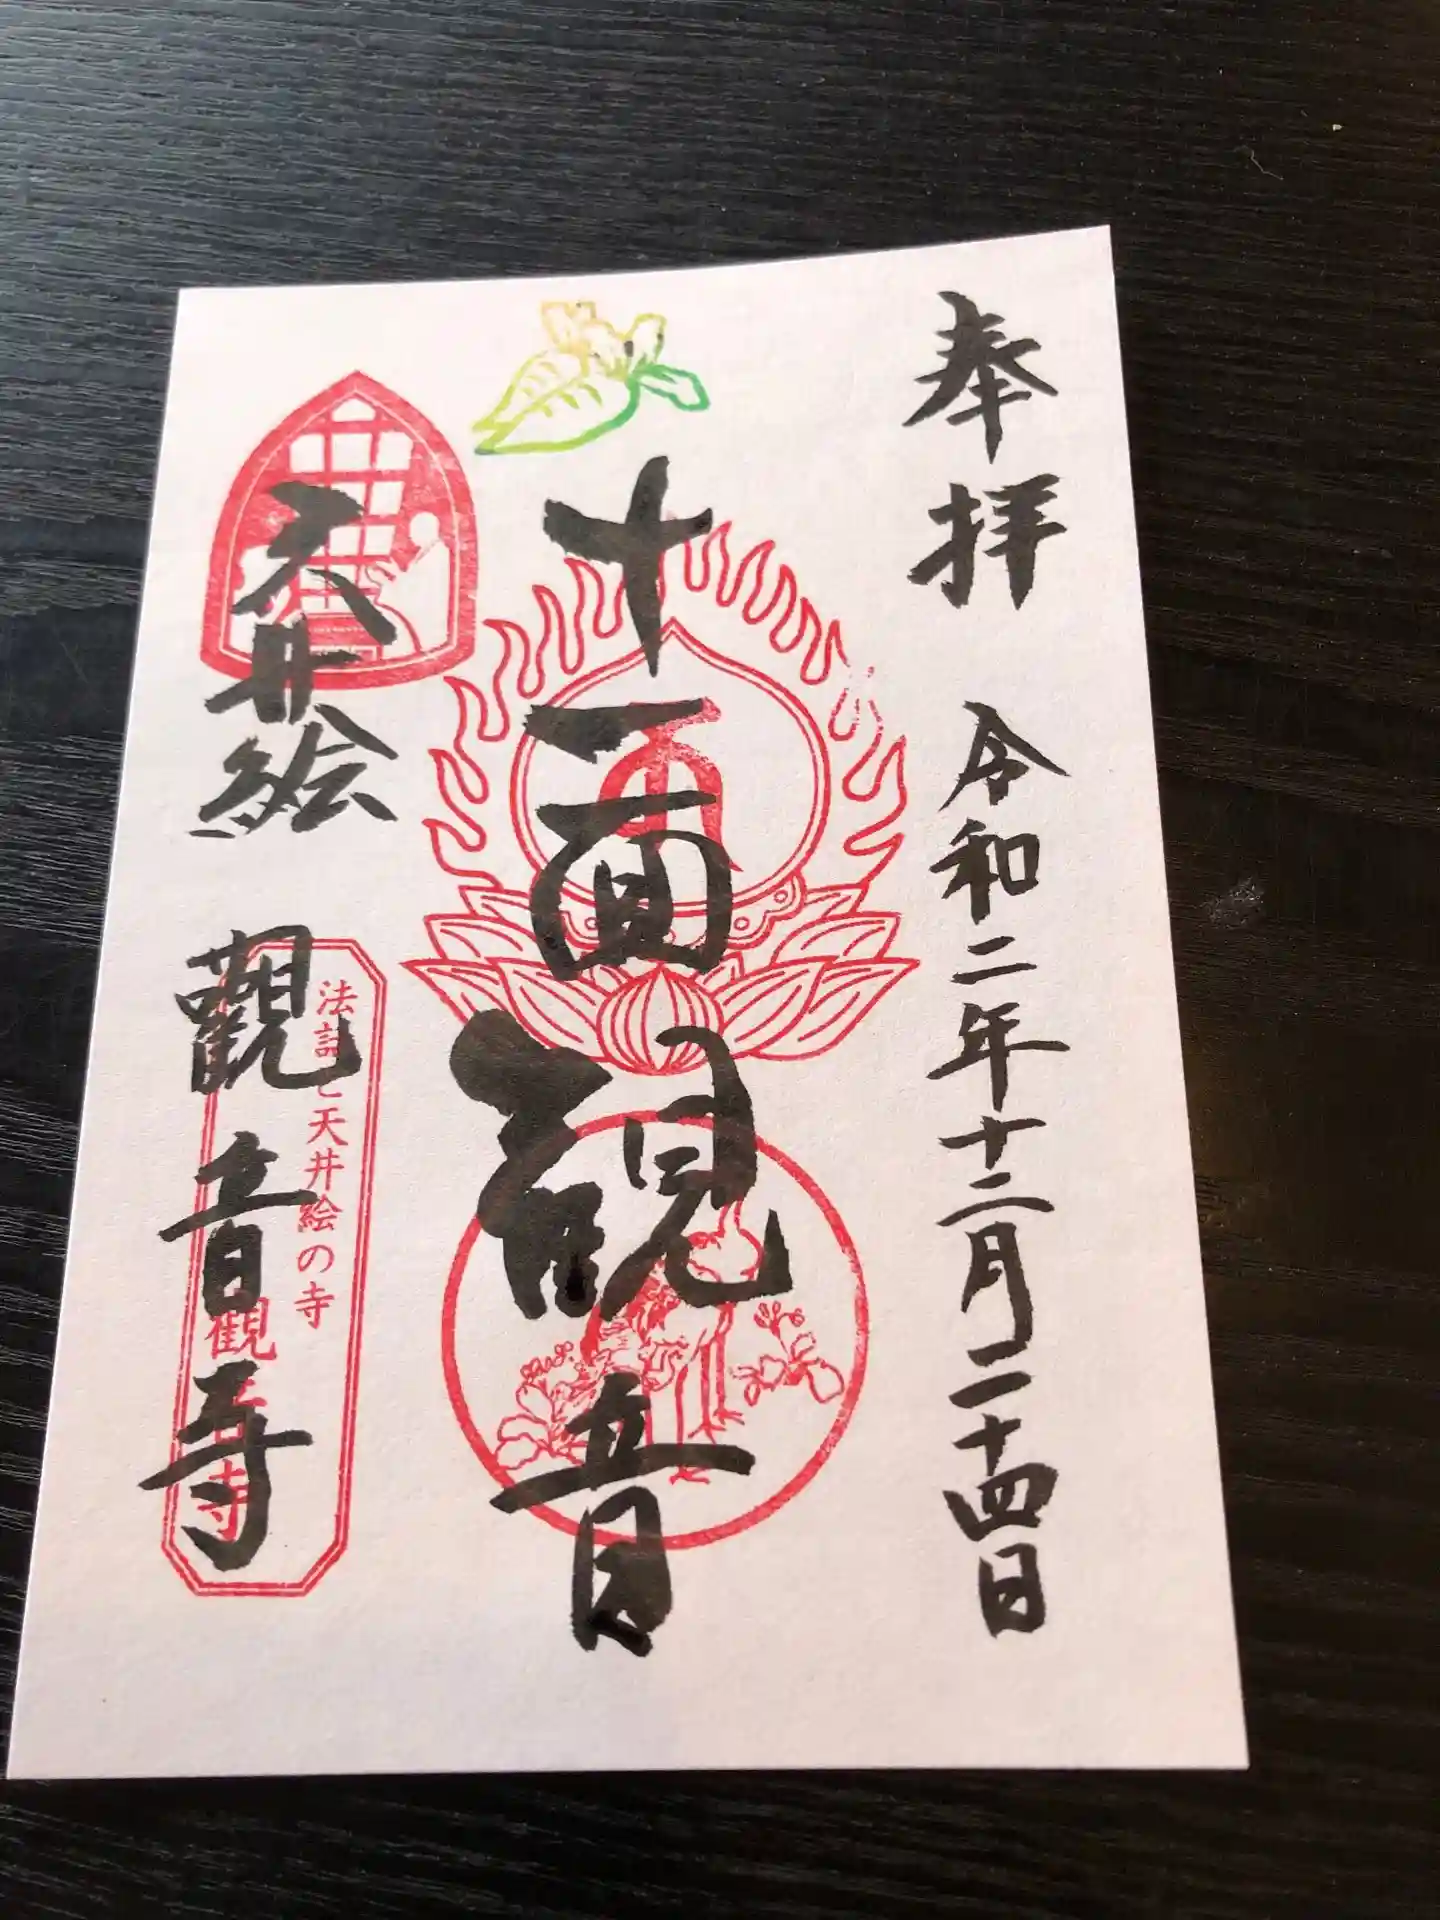 奉拝 令和二年十二月二十四日
十一面観音
天井絵 觀音寺
天井絵の寺
観 寺